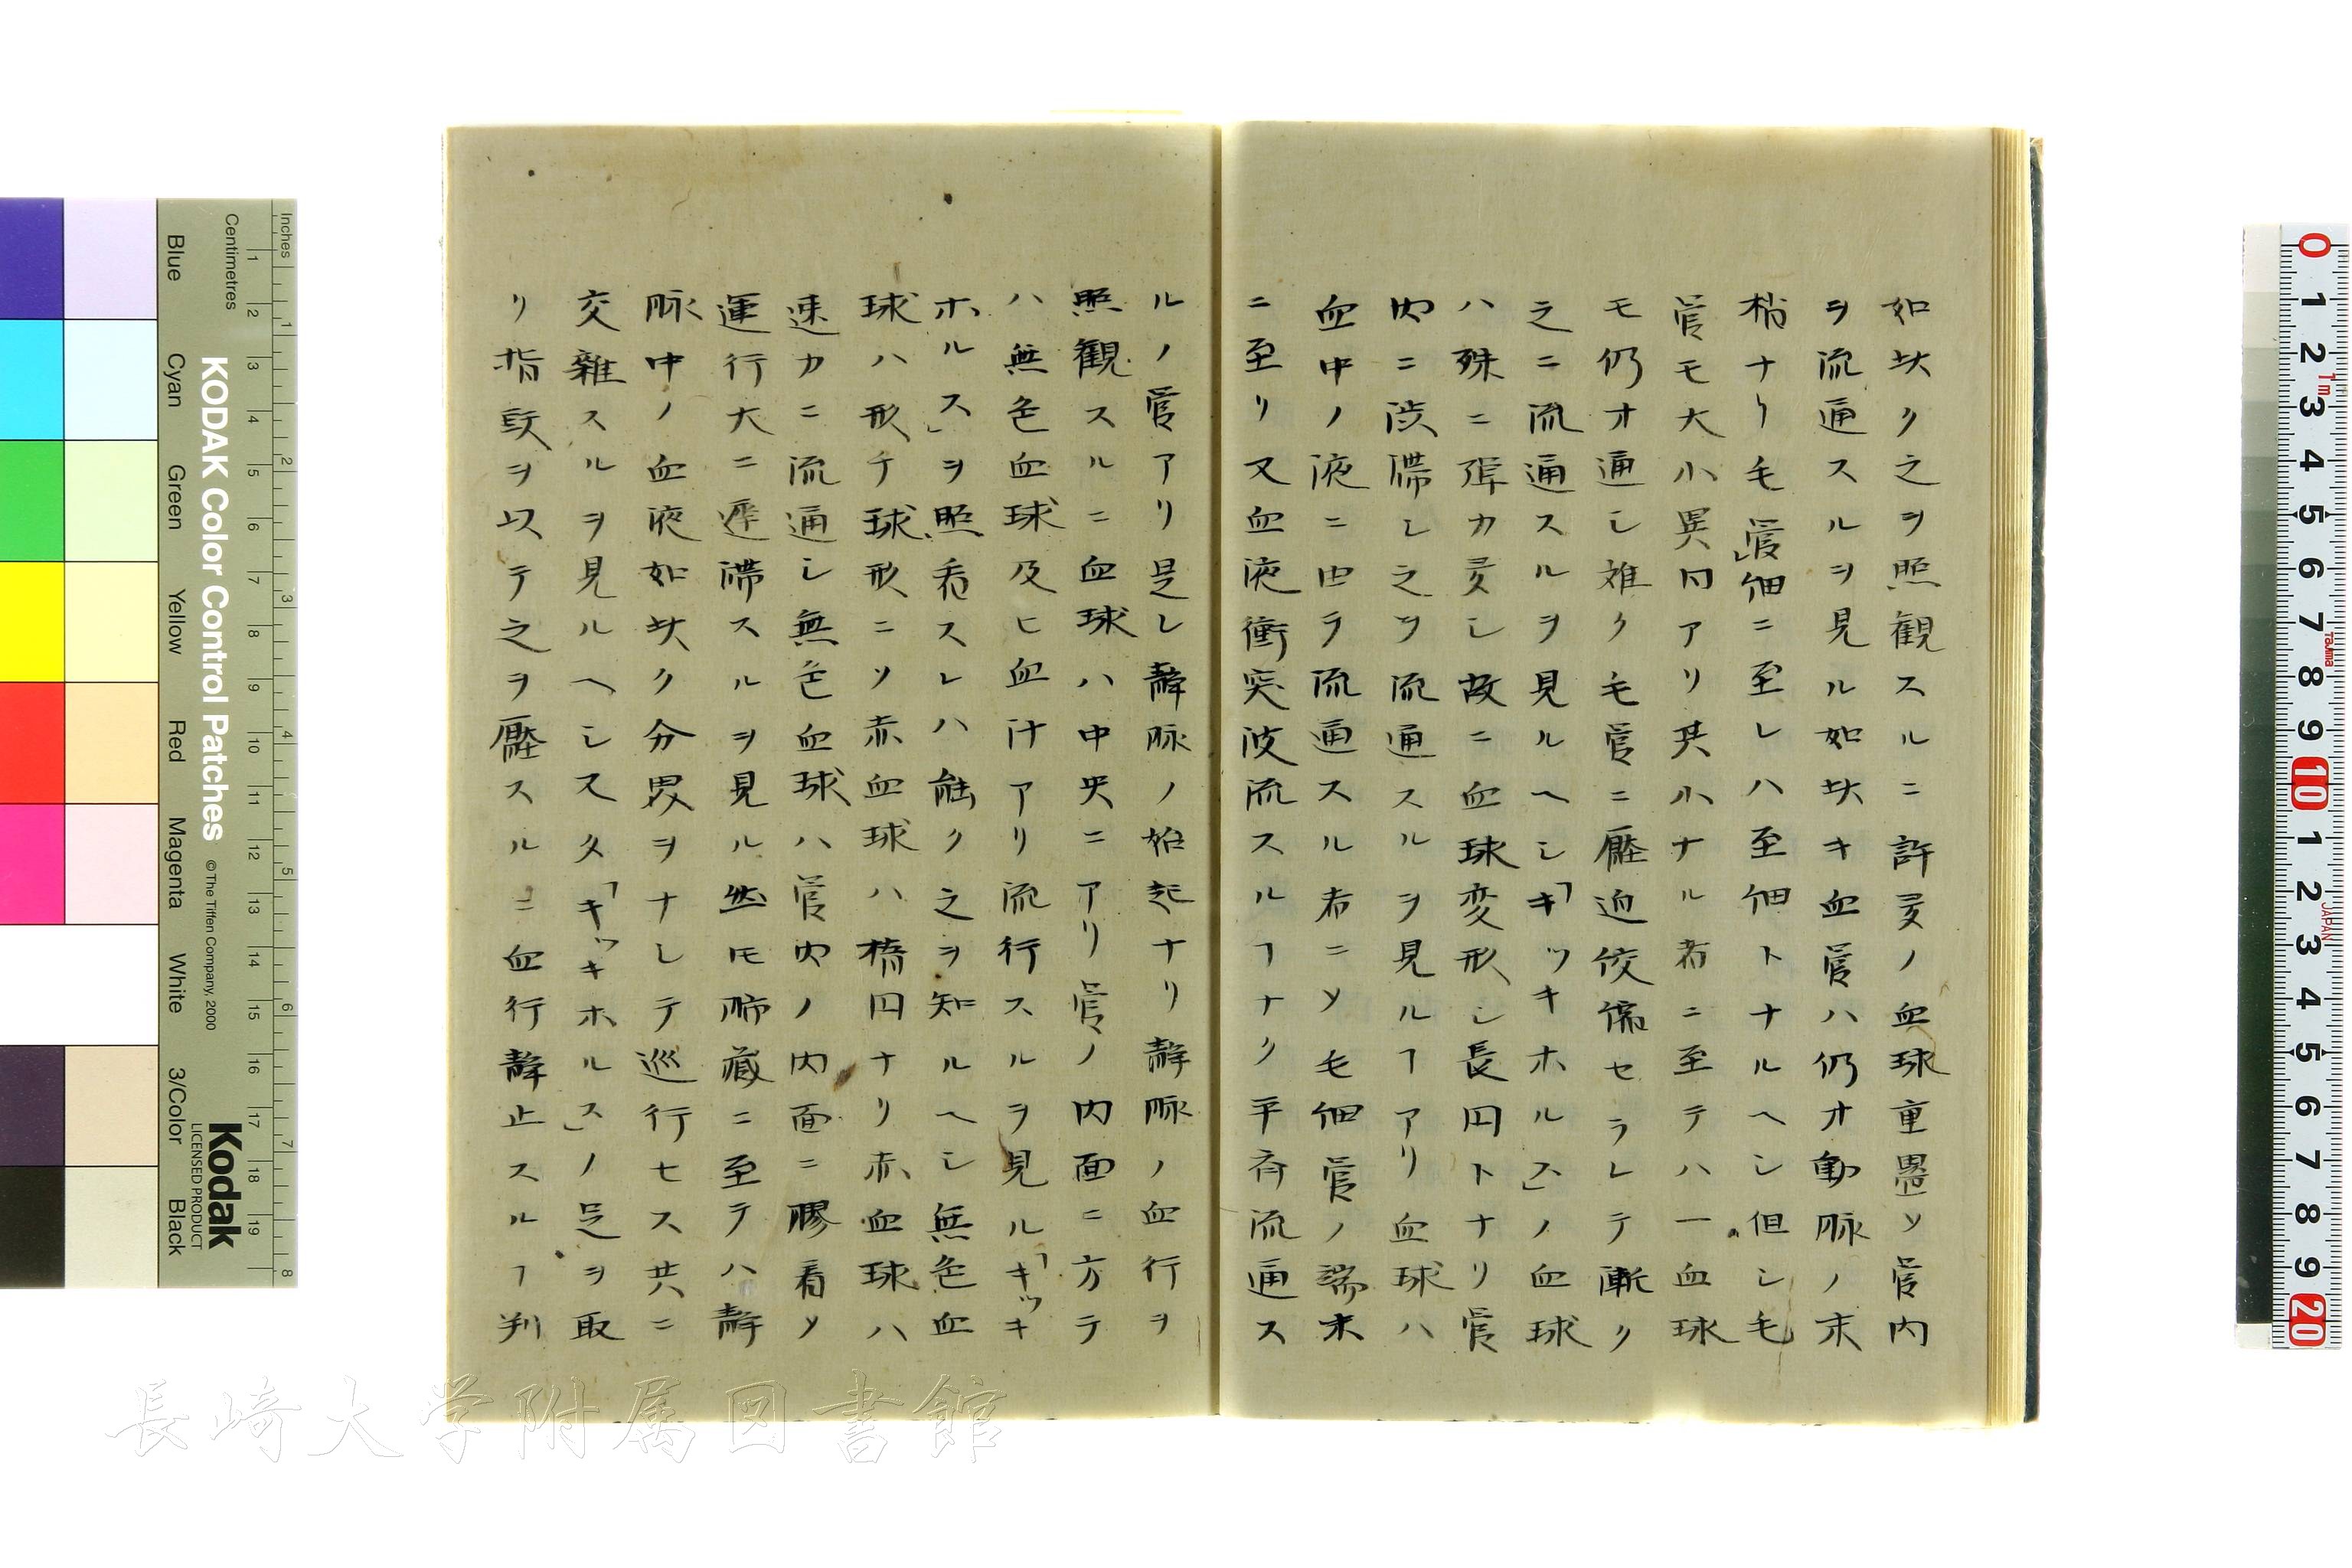 如此ク之ヲ照観スルニ許多ノ血球重畳ソ管内
ヲ流通スルヲ見ル如此キ血管ハ仍オ動脈ノ末
梢ナリ毛管細ニ至レハ至細トナルヘシ但シ毛
管モ大小異同アリ其小ナル者ニ至テハ一血球
モ仍オ通シ难ク毛管ニ壓迫セラレテ漸ク
之ニ流通スルヲ見ルヘシ「キツキホルス」ノ血球
ハ殊ニ弾力多シ故ニ血球変形シ長円トナリ管
内ニ渋滞シ之ヲ流通スルヲ見ルヿアリ血球ハ
血中ノ液ニ由テ流通スル者ニソ毛細管ノ端末
ニ至リ又血液衝突波流スルヿナク平斉流通ス
ルノ管アリ是レ静脈ノ始起ナリ静脈ノ血行ヲ
照観スルニ血球ハ中央ニアリ管ノ内面ニ方テ
ハ無色血球及ヒ血汁アリ流行スルヲ見ル「キッキ
ホルス」ヲ照看スレハ能ク之ヲ知ルヘシ無色血
球ハ形チ球形ニソ赤血球ハ橢円ナリ赤血球ハ
速カニ流通シ無色血球ハ管内ノ内面ニ膠着ソ
運行大ニ遅滞スルヲ見ル然モ肺蔵ニ至テハ静
脈中ノ血液如此ク分界ヲナシテ巡行セス共ニ
交雑スルヲ見ルヘシ又タ「キッキホルス」ノ足ヲ取
リ指頭ヲ以テ之ヲ壓スルニ血行静止スルヿ判
Inches
Centimetres
KODAK Color Control Patches
© The Tiffen Company, 2000
Kodak
LICENSED PRODUCT
Blue
Cyan
Green
Yellow
Red
Magenta
White
3/Color
Black
長崎大学附属図書館